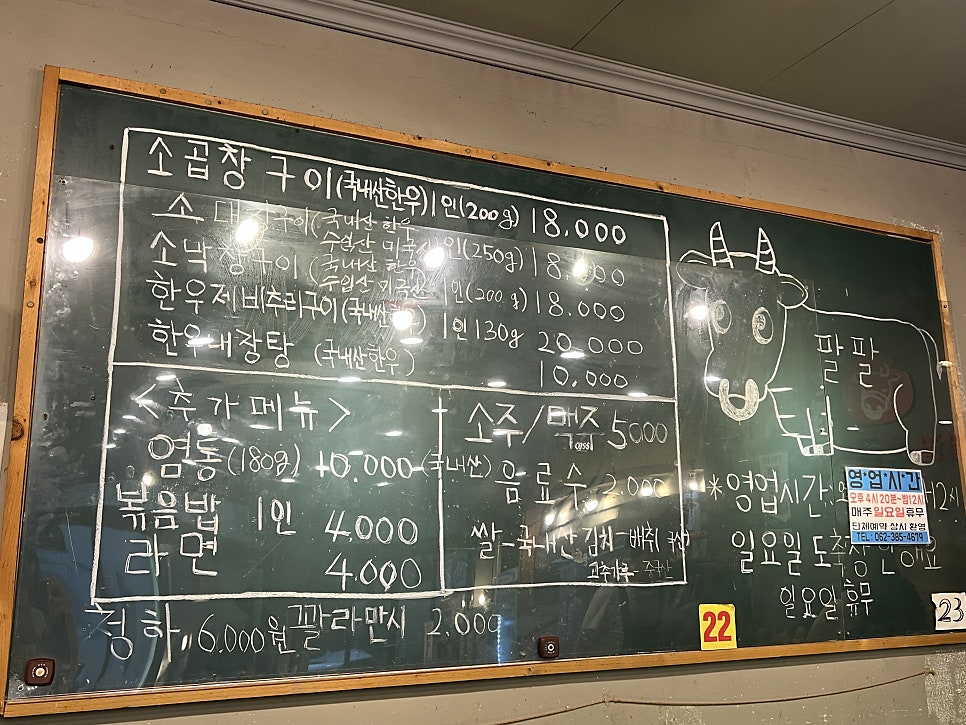 소곱창 구이 (국내산한우) 1인 (200g) 18.000
소대창구이 (국내산 한우 수입산 미국산 1인 (250g) 18.000
소막창구이 (국내산 한우 수입산 미국산 1인 (200g) 18.000
한우제비추리구이 (국내산한우) 1인 130g 20.000
한우내장탕 (국내산한우) 10.000
<추가메뉴>
염통 (180g) 10.000 (국내산)
볶음밥 1인 4.000
라면 4.000
소주/맥주 5000
음료수 2.000
쌀-국내산 김치-배추(국산)
고추가루-중국산
청하. 6.000원 꼴라만시 2.000
팔팔
*영업시간:
일요일도
일요일 휴무
영*업*시*간
오후 4시 20분~밤12시
매주 일요일휴무
단체예약 상시 환영
TEL: 062-385-4679
22
23